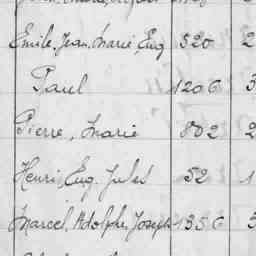 Emile, Jean, Marie, Eug 520 2
Paul 1206 3
Pierre, Marie 802 2
Henri, Eug. Jules 52 1
Marcel, Adolphe, Joseph 1356 3